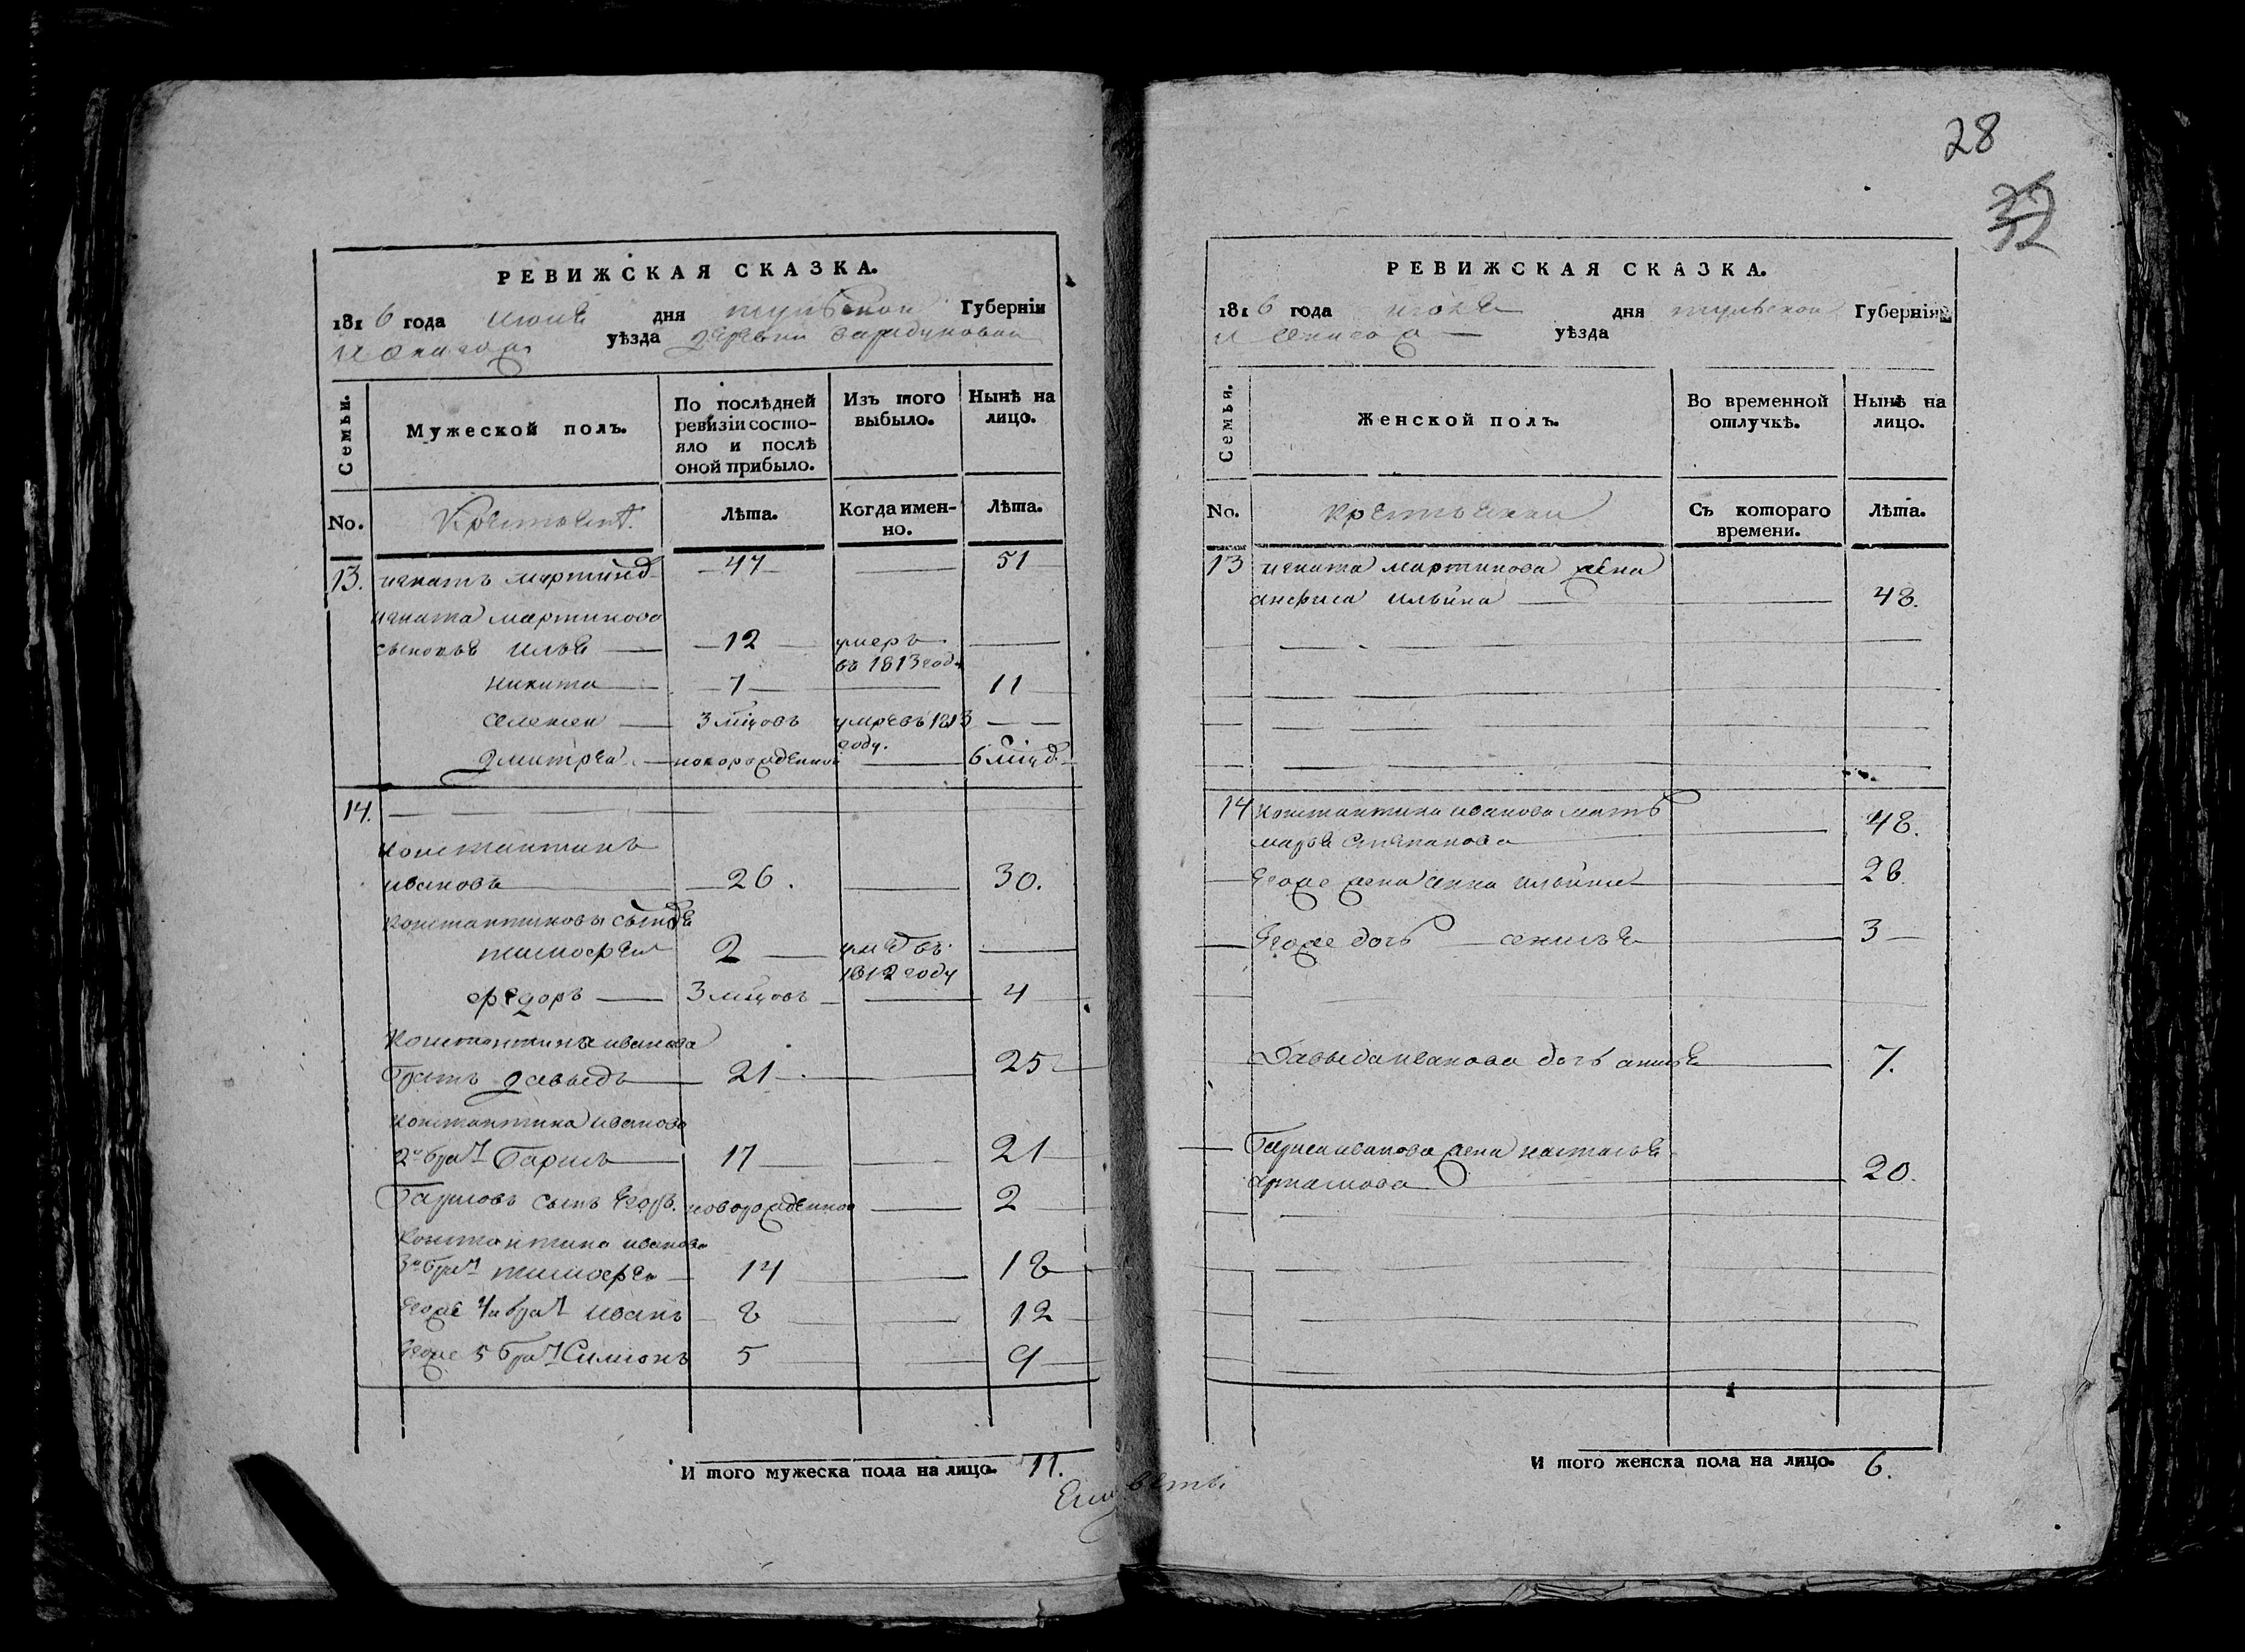 РЕВИЖСКАЯ СКАЗКА.
1816 года июня дня тульской Губернїи
уѣзда деревни
Семьи.
Мужеской полъ.
По послѣдней ревизіи состо-яло и послѣ оной прибыло.
Изъ того выбыло.
Нынѣ на лицо.
No.
Лѣта.
Когда имен-но.
Лѣта.
13. игнатъ мартиновъ 47 51
игната мартинова
сыновья илья 12 умеръ въ 1813 году
никита 7 11
3 мцовъ умре въ 1813 году.
дмитреи новорожденной 6 мцовъ
14.
константинъ
ивановъ 26. 30.
константиновы сыновья
тимофеи 2 умре въ 1812 году
федоръ 3 мцовъ 4
константина иванова
братъ давыдъ 21 25
константина иванова
2й братъ барисъ 17 21
барисовъ сынъ егоръ. новорожденной 2
константина иванова
3й братъ тимофеи 14 18
егоже 4й братъ иванъ 8 12
егоже 5 братъ Симионъ 5 9
И того мужеска пола на лицо. 11.
28
32
РЕВИЖСКАЯ СКАЗКА.
1816 года июня дня тульской Губернїи
уѣзда
Семьи.
Женской полъ.
Во временной отлучкѣ.
Нынѣ на лицо.
No.
крестьянки
Съ котораго времени.
Лѣта.
13 игната мартинова жена
анфиса ильина 48.
14 константина иванова мать
марья степанова 48.
егоже жена анна ильина 28.
егоже дочь 3
давыда иванова дочь 7.
бариса иванова жена настасья
артамова 20.
И того женска пола на лицо. 6.